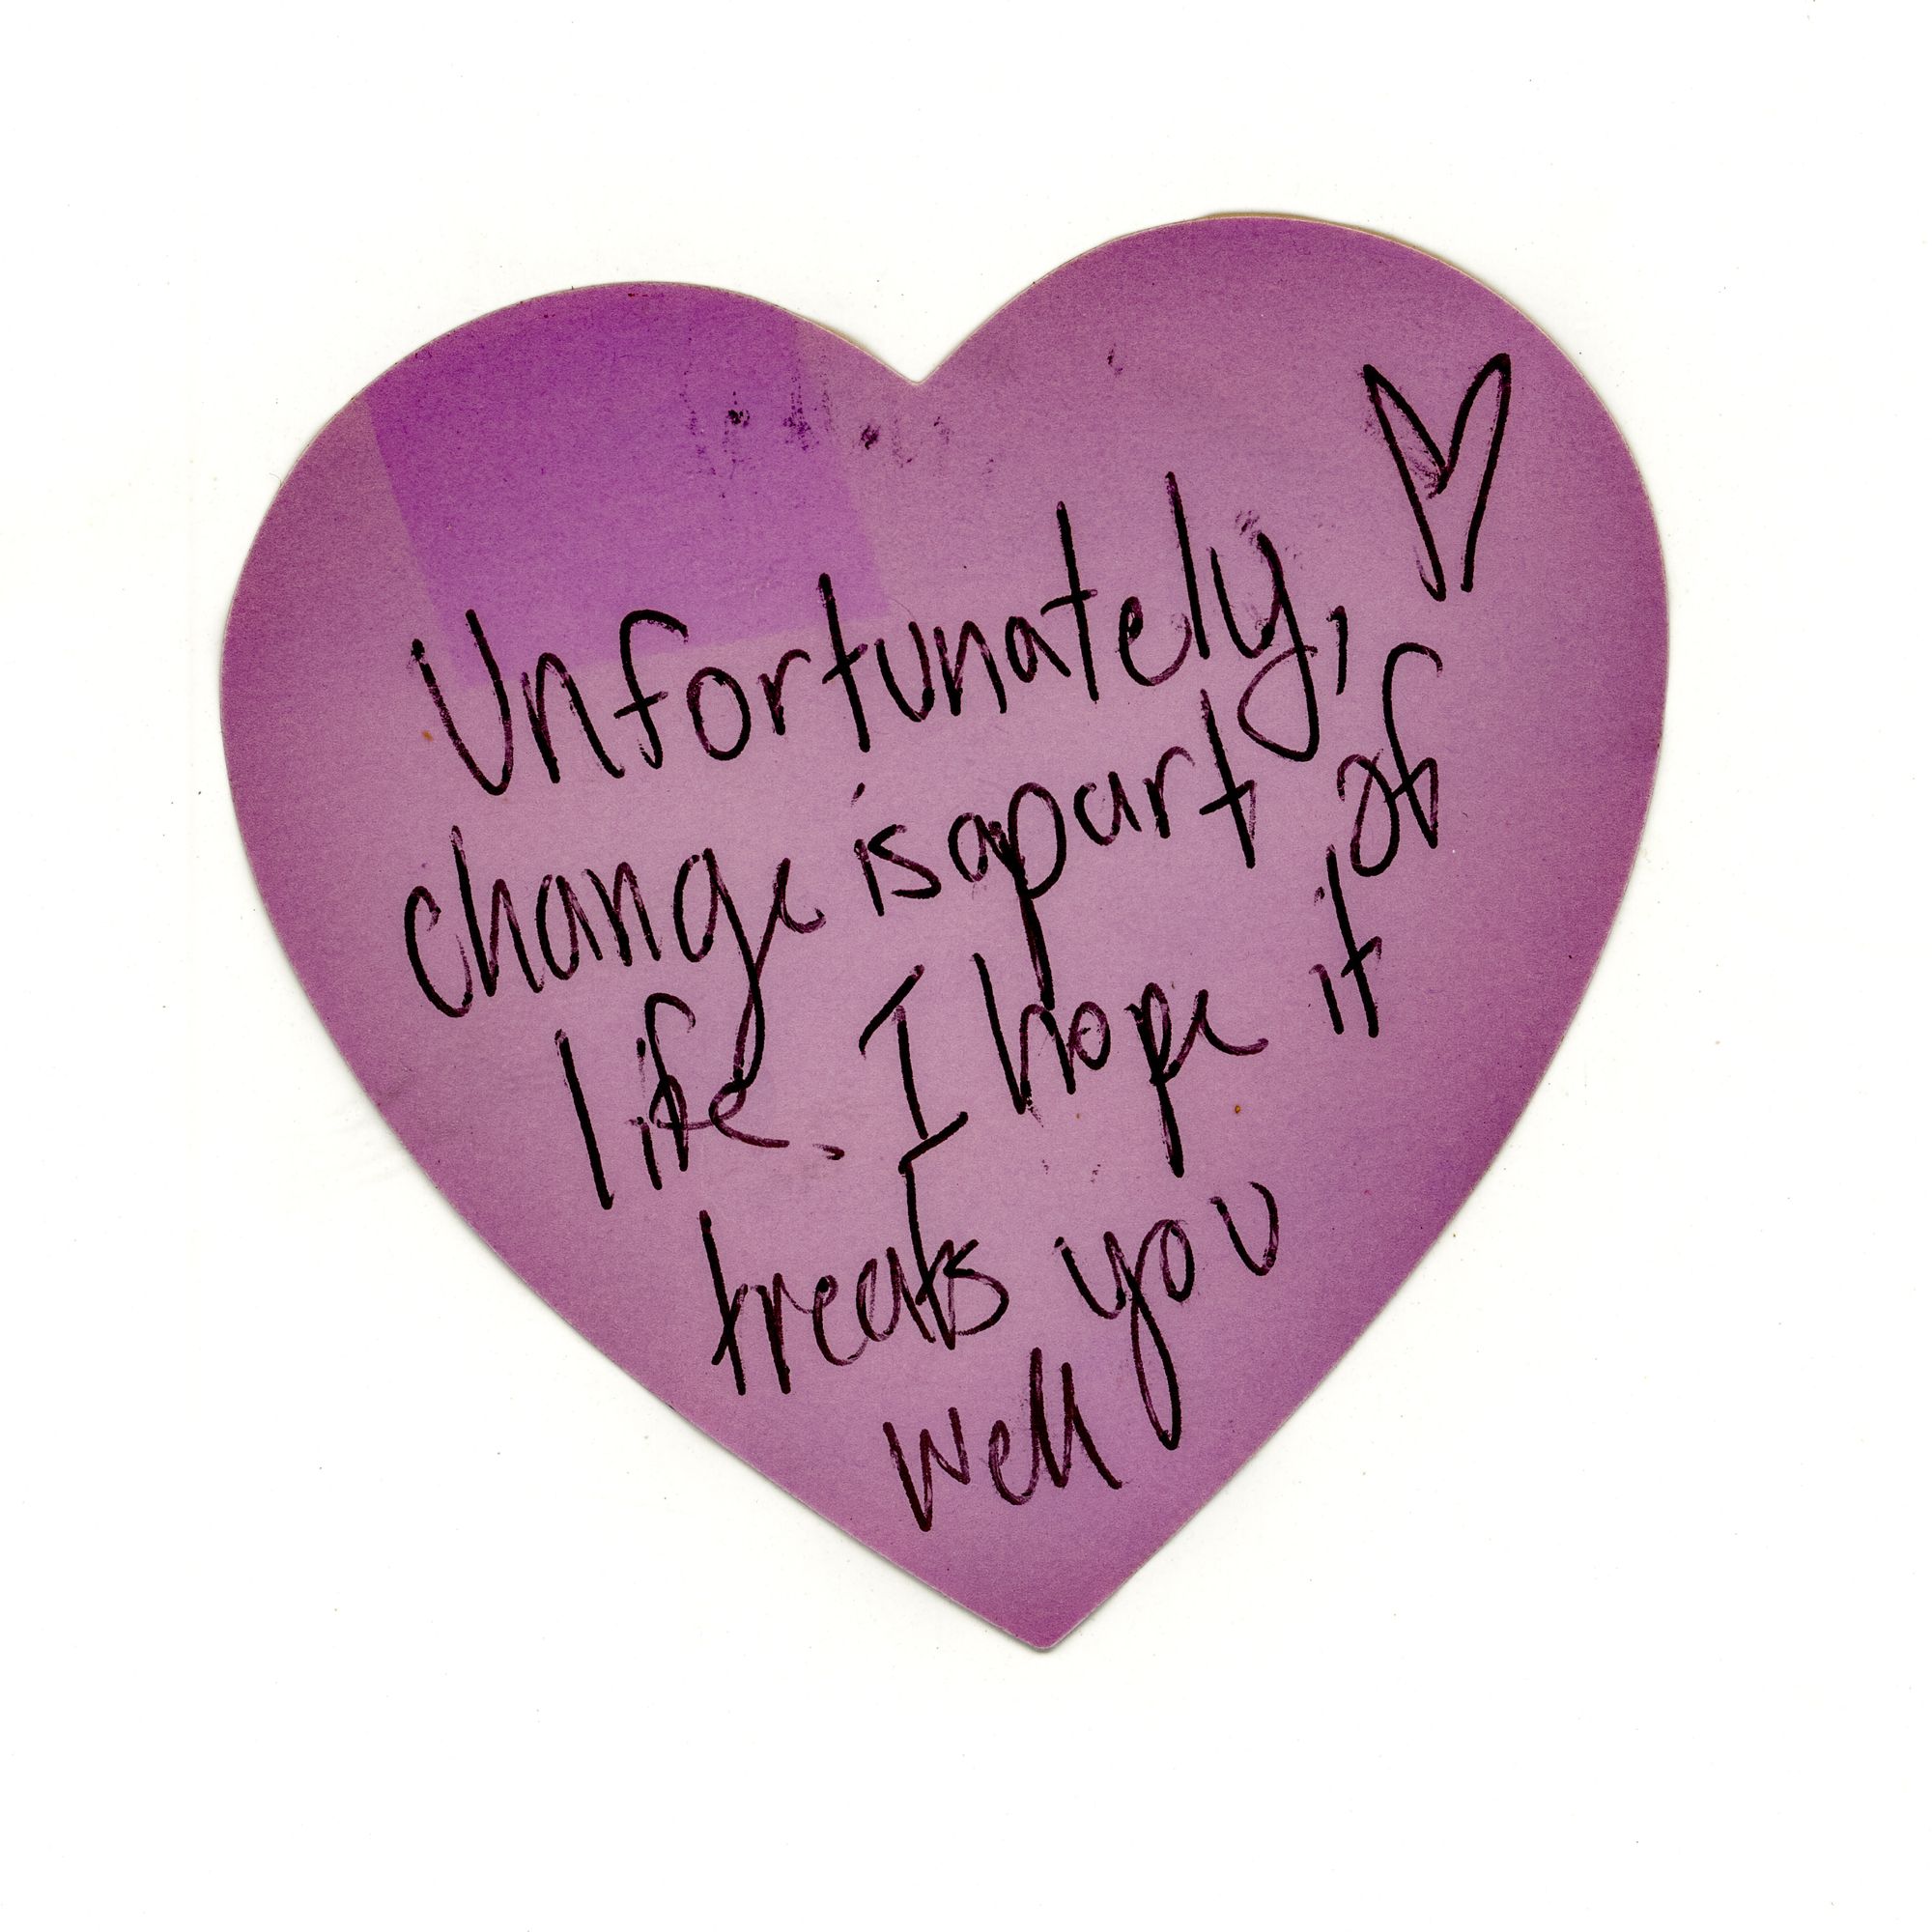 Unfortunately,
change is a part of
life. I hope it
treats you
well